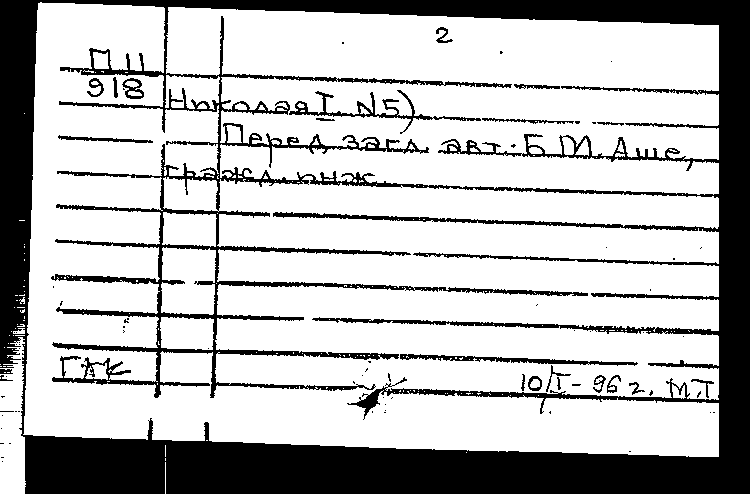 2
П 11
918
Николая I. N5)
Перед загл. авт.: Б.М. Аше,
гражд. инж.
ГАК
10/I - 96 г. М.Т.